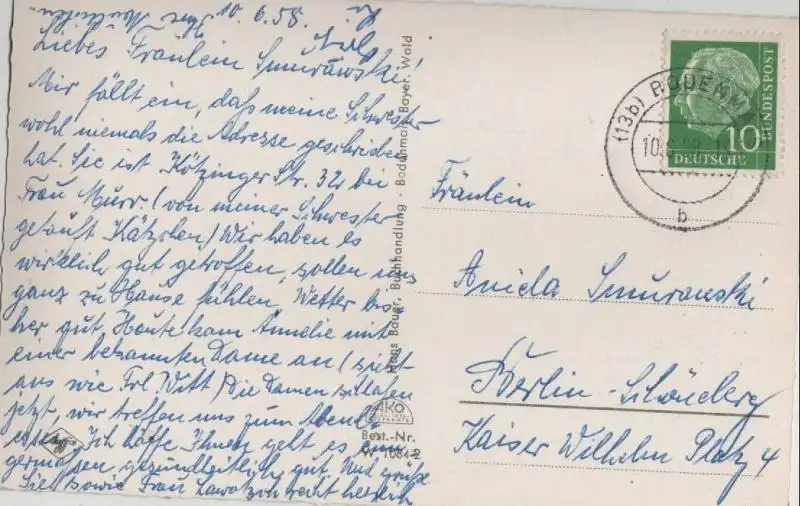 10.6.58.
Liebes Fräulein Smurawski!
Mir fällt ein, daß meine Schwester
wohl niemals die Adresse geschrieben
hat. Sie ist Kötzinger Str. 32 bei
Frau Murr. (von meiner Schwester
getauft Kätzchen) Wir haben es
wirklich gut getroffen, sollen uns
ganz zu Hause fühlen. Wetter bis-
her gut. Heute kam Annelie mit
einer bekannten Dame an (sieht
aus wie Frl. Witt) Die Damen schlafen
jetzt, wir treffen uns zum Abend-
essen. Ich hoffe Ihnen geht es eini-
germaßen gesundheitlich gut. Und grüße
Sie sowie Frau recht herzlich
Hans Bauer, Buchhandlung · Bodenmais, Bayer. Wald
AKO
Best.-Nr.
W 1084-2
(13b) BODENMAIS
b
10
DEUTSCHE
BUNDESPOST
Fräulein
Anida Smurawski
Berlin-Schöneberg
Kaiser Wilhelm Platz 4